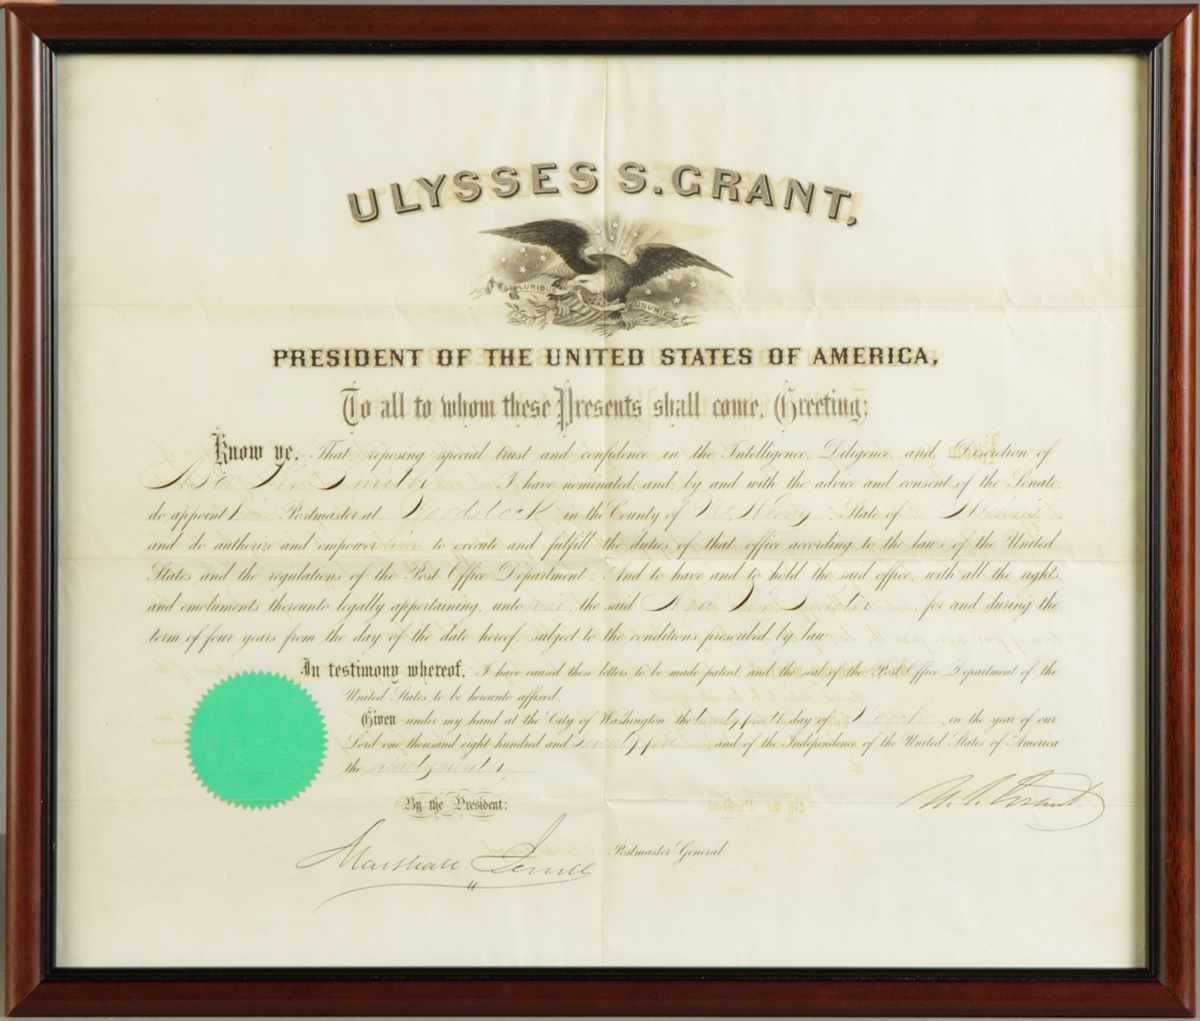 ULYSSES S. GRANT,
E PLURIBUS UNUM
PRESIDENT OF THE UNITED STATES OF AMERICA,
To all to whom these Presents shall come, Greeting:
Know ye, That, reposing special trust and confidence in the Intelligence, Diligence, and Discretion of
Smith I have nominated, and, by and with the advice and consent of the Senate,
do appoint him Postmaster at Woodstock in the County of McHenry State of
and do authorize and empower him to execute and fulfill the duties of that office according to the laws of the United
States and the regulations of the Post Office Department. And to have and to hold the said office, with all the rights
and emoluments thereunto legally appertaining, unto him, the said Smith for and during the
term of four years from the day of the date hereof, subject to the conditions prescribed by law
In testimony whereof, I have caused these letters to be made patent, and the seal of the Post Office Department of the
United States to be hereunto affixed.
Given under my hand at the City of Washington the day of March in the year of our
Lord one thousand eight hundred and and of the Independence of the United States of America
the
U. S. Grant
By the President:
Marshall Jewell Postmaster General